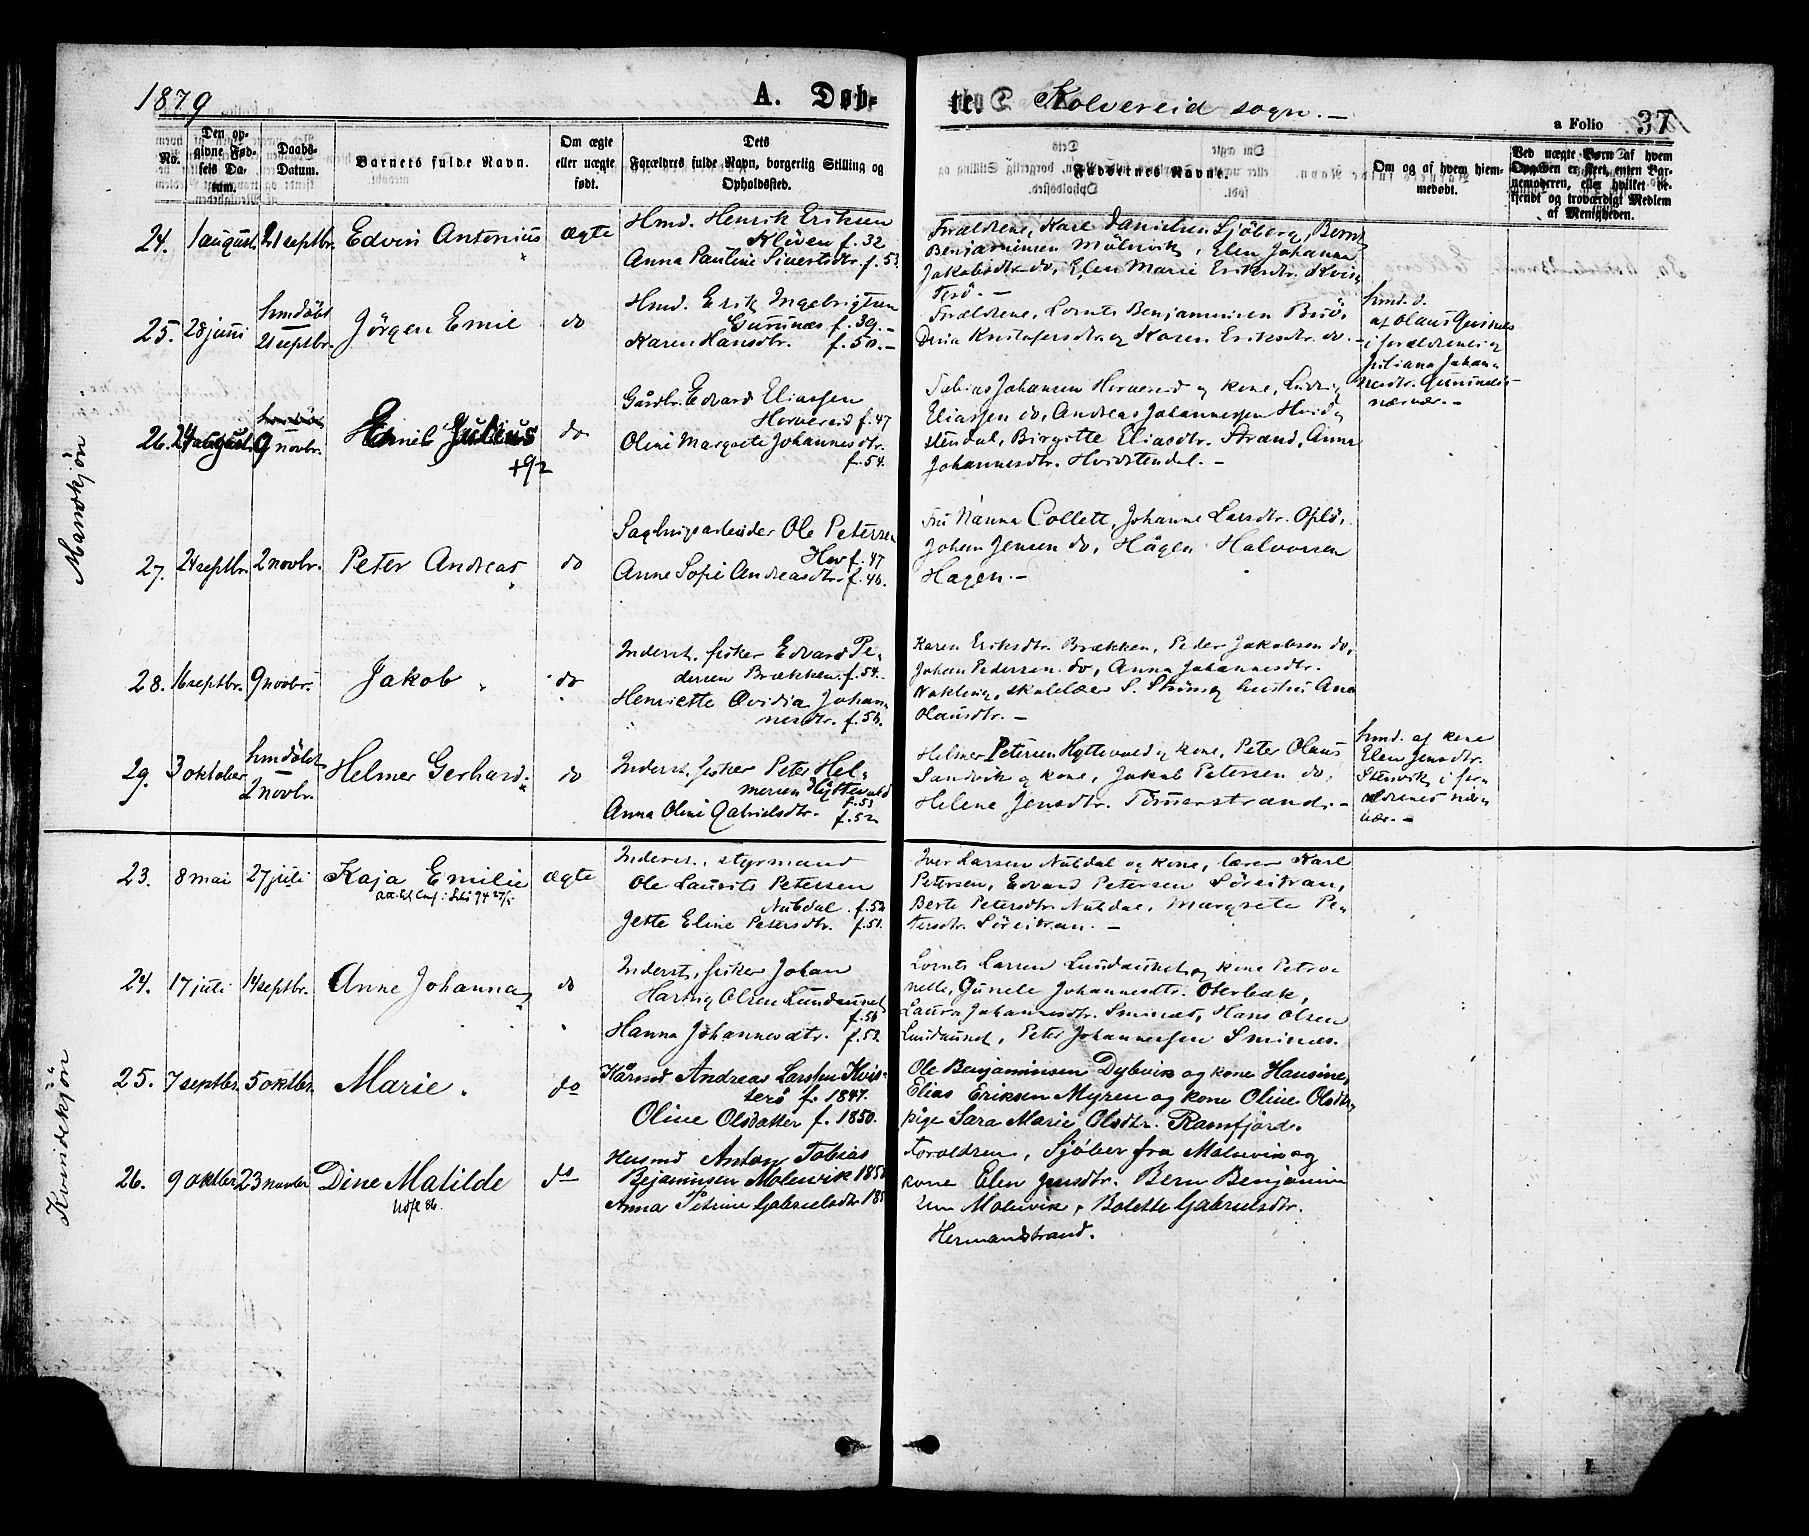 1879
A. Døb-
te. Kolvereid sogn. -
a Folio 37
No.
Den op-
givne Fød-
sels Da-
tum.
Daabs-
Datum.
Barnets fulde Navn.
Om ægte
eller uægte
født.
Dets
Forældres fulde Navn, borgerlig Stilling og
Opholdssted.
Faddernes Navne.
Om og af hvem hjem-
medøbt.
Ved uægte Børn af hvem
Opgaven er skeet, enten Bar-
nemoderen, eller hvilket be-
kjendt og troværdigt Medlem
af Menigheden.
Mandskjøn
24. 1 august 21 septbr. Edvin Antonius ægte
Hmd. Henrik Eriksen
Kleven f. 32
Anna Pauline Sivertsdtr. f. 53
Forældrene, Karl Danielsen Sjöberg, Bernt
Benjaminsen Mulevik, Elen Johanna
Jakobsdtr do, Elen Marie Eriksdtr. Kvis-
terö. -
25. 28 juni hmdøbt 21 septbr. Jørgen Emil do
Hmd. Erik Ingebrigtsen
Gusnæs f. 39. -
Karen Hansdtr. f. 50. -
Forældrene, Lornts Benjaminsen Buö,
Kristofersdtr. og Karen Eriksdtr. do. -
hmd. d.
af Olaus
i forældrenes og
Juliana Johan-
nesdtr.
nærvær. -
26. 24 august 9 novbr. Julius do
+92
Gårdbr. Edvard Eliassen
Horvereid f. 47
Oline Margrete Johannesdtr.
f. 54.
Tobias Johansen Horvereid og kone, Ludvig
Eliassen do, Andreas Johannessen Hvid-
stendal, Birgitte Eliasdtr. Strand, Anne
Johannesdtr. Hvidstendal. -
27. 24 septbr. 2 novbr. Peter Andreas do
Sagbrugsarbeider Ole Petersen
Hov f. 47
Anne Sofie Andreasdtr. f. 46.
Fru Nanna Collett, Johanne Larsdtr. Oplö,
Johan Jensen do, Hågen Halvorsen
Hagen. -
28. 16 septbr. 9 novbr. Jakob do
Inderst, fisker Edvard Pe-
dersen Brækken f. 54.
Henriette Ovidia Johan-
nesdtr. f. 56.
Karen Eriksdtr. Brækken, Peder Jakobsen do,
Johan Pedersen do, Anna Johannesdtr.
Nakling, skolelær S. og hustru Ane
Olausdtr. -
29. 3 oktober hmdøbt 2 novbr. Helmer Gerhard do
Inderst, fisker Peter Hel-
mersen Hyttevold
f. 53
Anna Oline Gabrielsdtr. f. 52
Helmer Petersen Hyttevold og kone, Peter Olaus
Sandvik og kone, Jakob Petersen do,
Helene Jensdtr. Timerstrand. -
hmd. af kone
Elen Jensdtr.
Stensvik i for-
ældrenes nær-
vær. -
Kvindekjön
23. 8 mai 27 juli Kaja Emilie ægte
Inderst, styrmand
Ole Laurits Petersen
Nubdal f. 52
Jette Eline Petersdtr. f. 51.
Iver Larsen Nubdal og kone, lærer Karl
Petersen, Edvard Petersen Söreitran,
Berte Petersdtr Nubdal, Margrete Pe-
tersdtr. Söreitran. -
24. 17 juli 14 septbr. Anne Johanna do
Inderst, fisker Johan
Hartvig Olsen Lundaunet
f. 56
Hanna Johannesdtr. f. 52.
Lornts Larsen Lundaunet og kone Petro-
nelle, Gunele Johannesdtr. Oterbæk,
Laura Johannesdtr. Smines, Hans Olsen
Lundaunet, Peter Johannessen Smines.
25. 7 septbr. 5 oktbr. Marie. do
Kårmd Andreas Larssen Kvis-
terö f. 1847.
Oline Olsdatter f. 1850.
Ole Benjaminsen Dybvik og kone Hansine,
Elias Eriksen Myren og kone Oline Olsdtr,
pige Sara Marie Olsdtr. Ramfjord.
26. 9 oktbr. 23 novbr Dine Matilde do
Husmd Anton Tobias
Bejaminsen Molevik 185
Anna Petrine Gabrielsdtr 185
Foroldren, Sjöber fra Molevik og
kone Elen Jensdtr. Bern Benjamin
sen Molevik, Bolette Gabrielsdtr.
Hermandstrand.